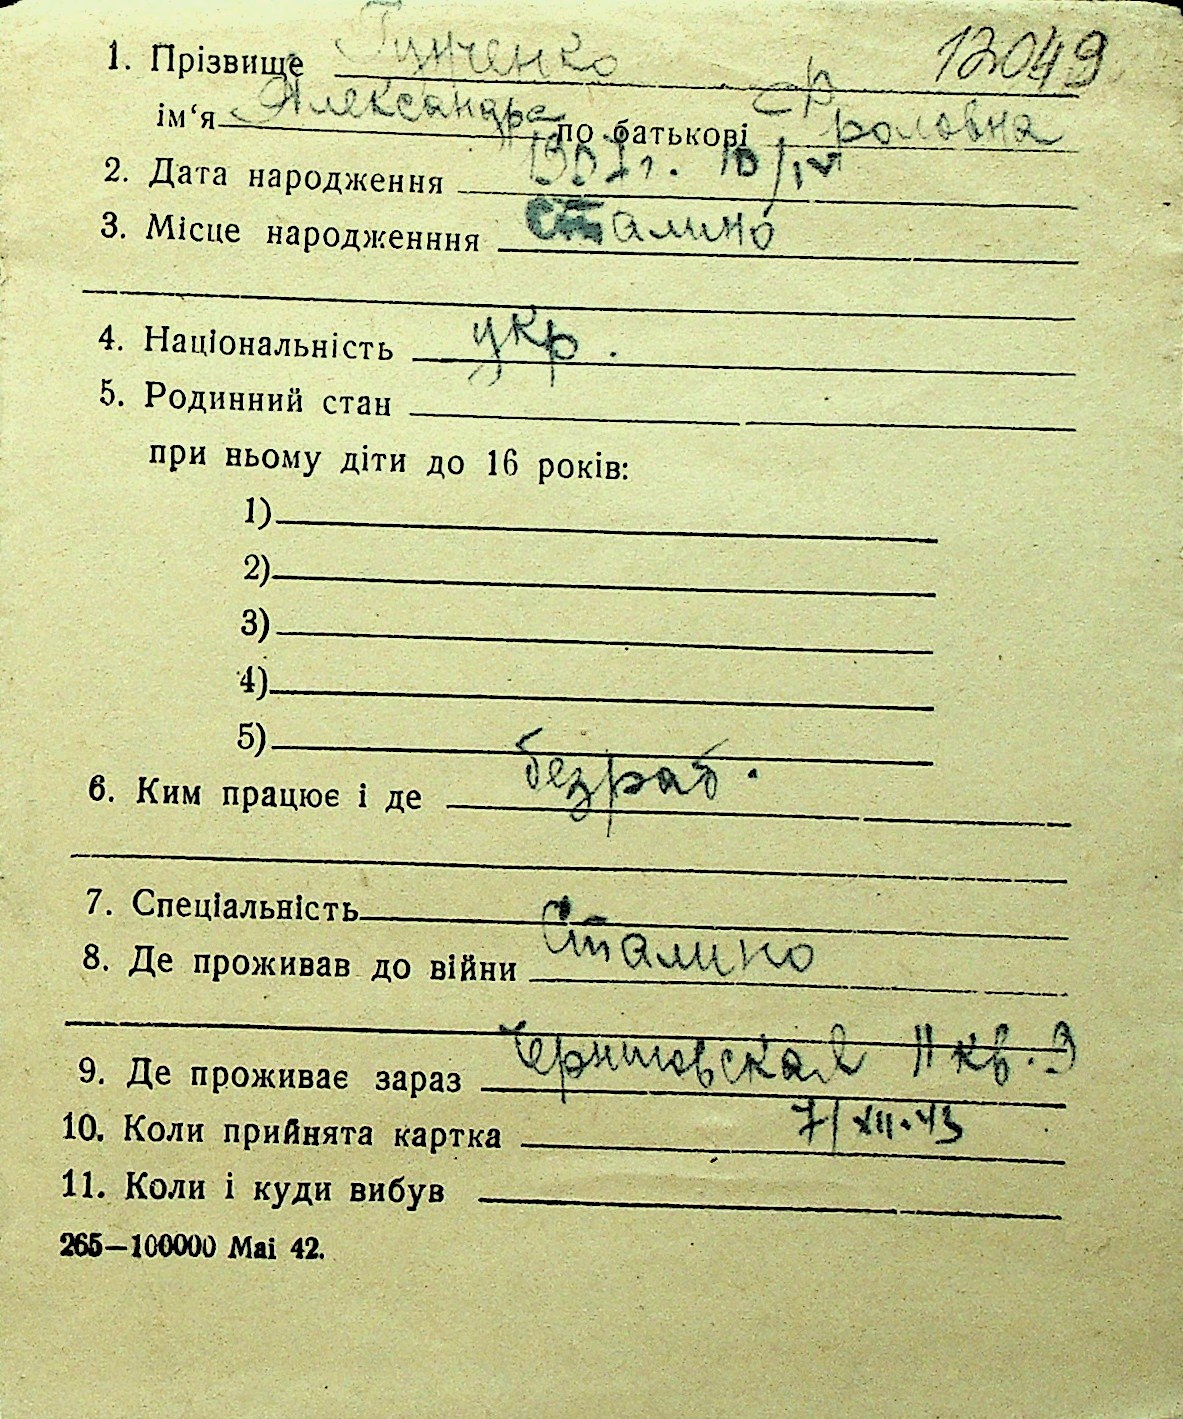 12049
1. Прізвище
ім‘я Александра по батькові Фроловна
2. Дата народження 10/IV
3. Місце народженння Сталино
4. Національність укр.
5. Родинний стан
при ньому діти до 16 років:
1)
2)
3)
4)
5)
6. Ким працює і де безраб.
7. Спеціальність
8. Де проживав до війни Сталино
9. Де проживає зараз 11 кв. 9
10. Коли прийнята картка 7/XII.43
11. Коли і куди вибув
265—100000 Mai 42.